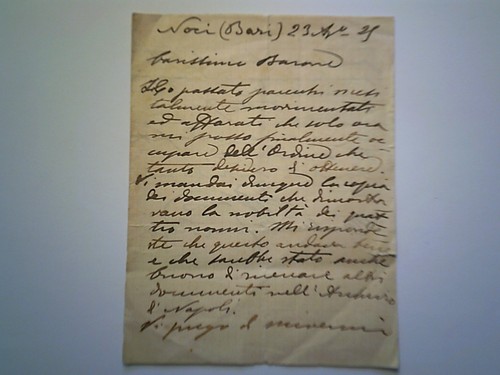 Noci (Bari) 23 Ap.le 25
Carissimo Barone
Ho passato parecchi mesi
talmente
ed affarati che solo ora
mi posso finalmente oc
cupare dell'Ordine che
tanto desidero d'ottenere.
Vi mandai dunque la copia
dei documenti che dimostra
vano la nobiltà dei quat
tro nonni. Mi rispondeste
che questo andava bene
e che sarebbe stato anche
buono di ricercare altri
documenti nell'Archivio
di Napoli.
Vi prego di